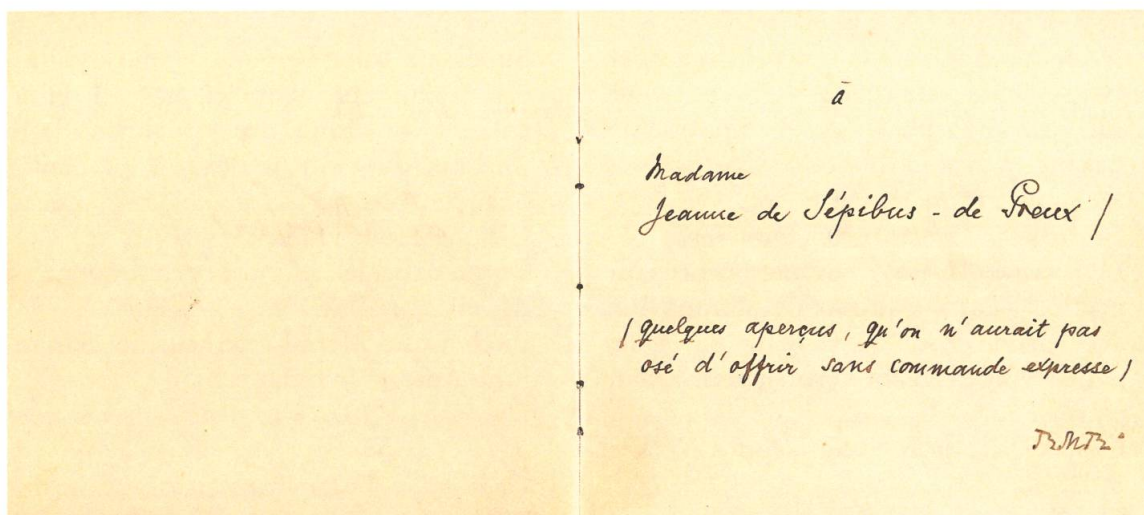 à
Madame
Jeanne de Sépibus - de Preux /
/ quelques aperçus, qu'on n'aurait pas
osé d'offrir sans commande expresse /
RMR